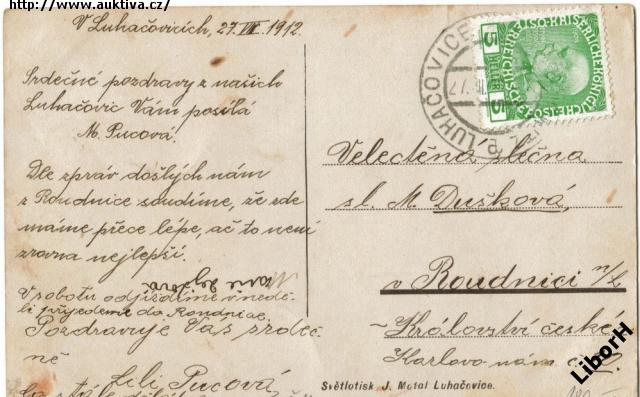 http://www.auktiva.cz/
V Luhačovicích, 27. VII. 1912
Srdečné pozdravy z našich
Luhačovic Vám posílá
M. Pucová.
Dle zpráv došlých nám
z Roudnice soudíme, že zde
máme přece lépe, ač to není
zrovna nejlepší.
Marie
V sobotu odjíždíme v nedě-
li přijedeme do Roudnice.
Pozdravuje Vás srdeč-
ně
Lili Pucová
LUHAČOVICE
5 HELLER 5
Velectěná slečna
sl. M. Dušková,
v Roudnici n/L
Království české
Karlovo nám. č.
Světlotisk J. Motal Luhačovice.
LiborH